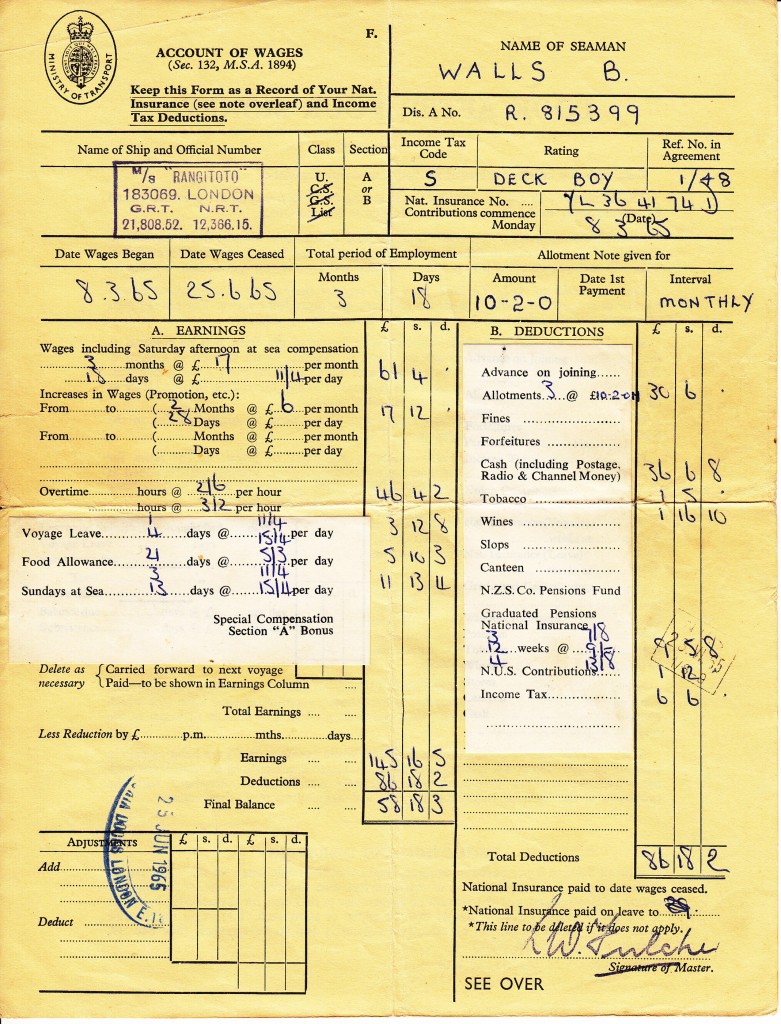 F.
MINISTRY OF TRANSPORT
ACCOUNT OF WAGES
(Sec. 132, M.S.A. 1894)
Keep this Form as a Record of Your Nat.
Insurance (see note overleaf) and Income
Tax Deductions.
NAME OF SEAMAN
WALLS B.
Dis. A No. R. 815399
Name of Ship and Official Number
M/S "RANGITOTO"
183069. LONDON
G.R.T. N.R.T.
21,808.52. 12,366.15.
Class Section
U. A
C.S. or
G.S. B
List
Income Tax Code Rating Ref. No. in Agreement
S DECK BOY 1/48
Nat. Insurance No. .... YL 36 41 74 D
Contributions commence (Date)
Monday 8 3 65
Date Wages Began Date Wages Ceased Total period of Employment Allotment Note given for
8.3.65 25.6.65
Months Days Amount Date 1st Payment Interval
3 18 10-2-0 MONTHLY
A. EARNINGS £ s. d.
Wages including Saturday afternoon at sea compensation
3 months @ £ 17 per month
18 days @ £ 11/4 per day 61 4 .
Increases in Wages (Promotion, etc.):
From to (2 Months @ £ 6 per month
(28 Days @ £ per day 17 12 .
From to ( Months @ £ per month
( Days @ £ per day
Overtime hours @ 2/6 per hour
hours @ 3/2 per hour 46 4 2
1 11/4
Voyage Leave 4 days @ 15/4 per day 3 12 8
Food Allowance 21 days @ 5/3 per day 5 10 3
3 11/4
Sundays at Sea 13 days @ 15/4 per day 11 13 4
Special Compensation
Section "A" Bonus
Delete as necessary { Carried forward to next voyage
Paid—to be shown in Earnings Column
Total Earnings
Less Reduction by £ p.m. mths. days
Earnings 145 16 5
Deductions 86 18 2
Final Balance 58 18 3
B. DEDUCTIONS £ s. d.
Advance on joining
Allotments 3 @ £10-2-0 30 6 .
Fines
Forfeitures
Cash (including Postage,
Radio & Channel Money) 36 6 8
Tobacco 1 5 .
Wines 1 16 10
Slops
Canteen
N.Z.S. Co. Pensions Fund
Graduated Pensions
National Insurance
3 7/8
12 weeks @ 9/5 5 8
4 13/8
N.U.S. Contributions 1 12
Income Tax 6 6 .
Total Deductions 86 18 2
ADJUSTMENTS £ s. d. £ s. d.
Add
Deduct
LONDON E.
25 JUN 1965
National Insurance paid to date wages ceased.
*National Insurance paid on leave to
*This line to be deleted if it does not apply.
Signature of Master.
SEE OVER